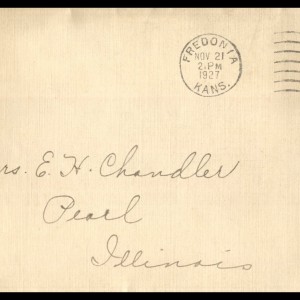 FREDONIA
NOV 21
2 PM
1927
KANS.
rs. E. H. Chandler
Pearl
Illinois